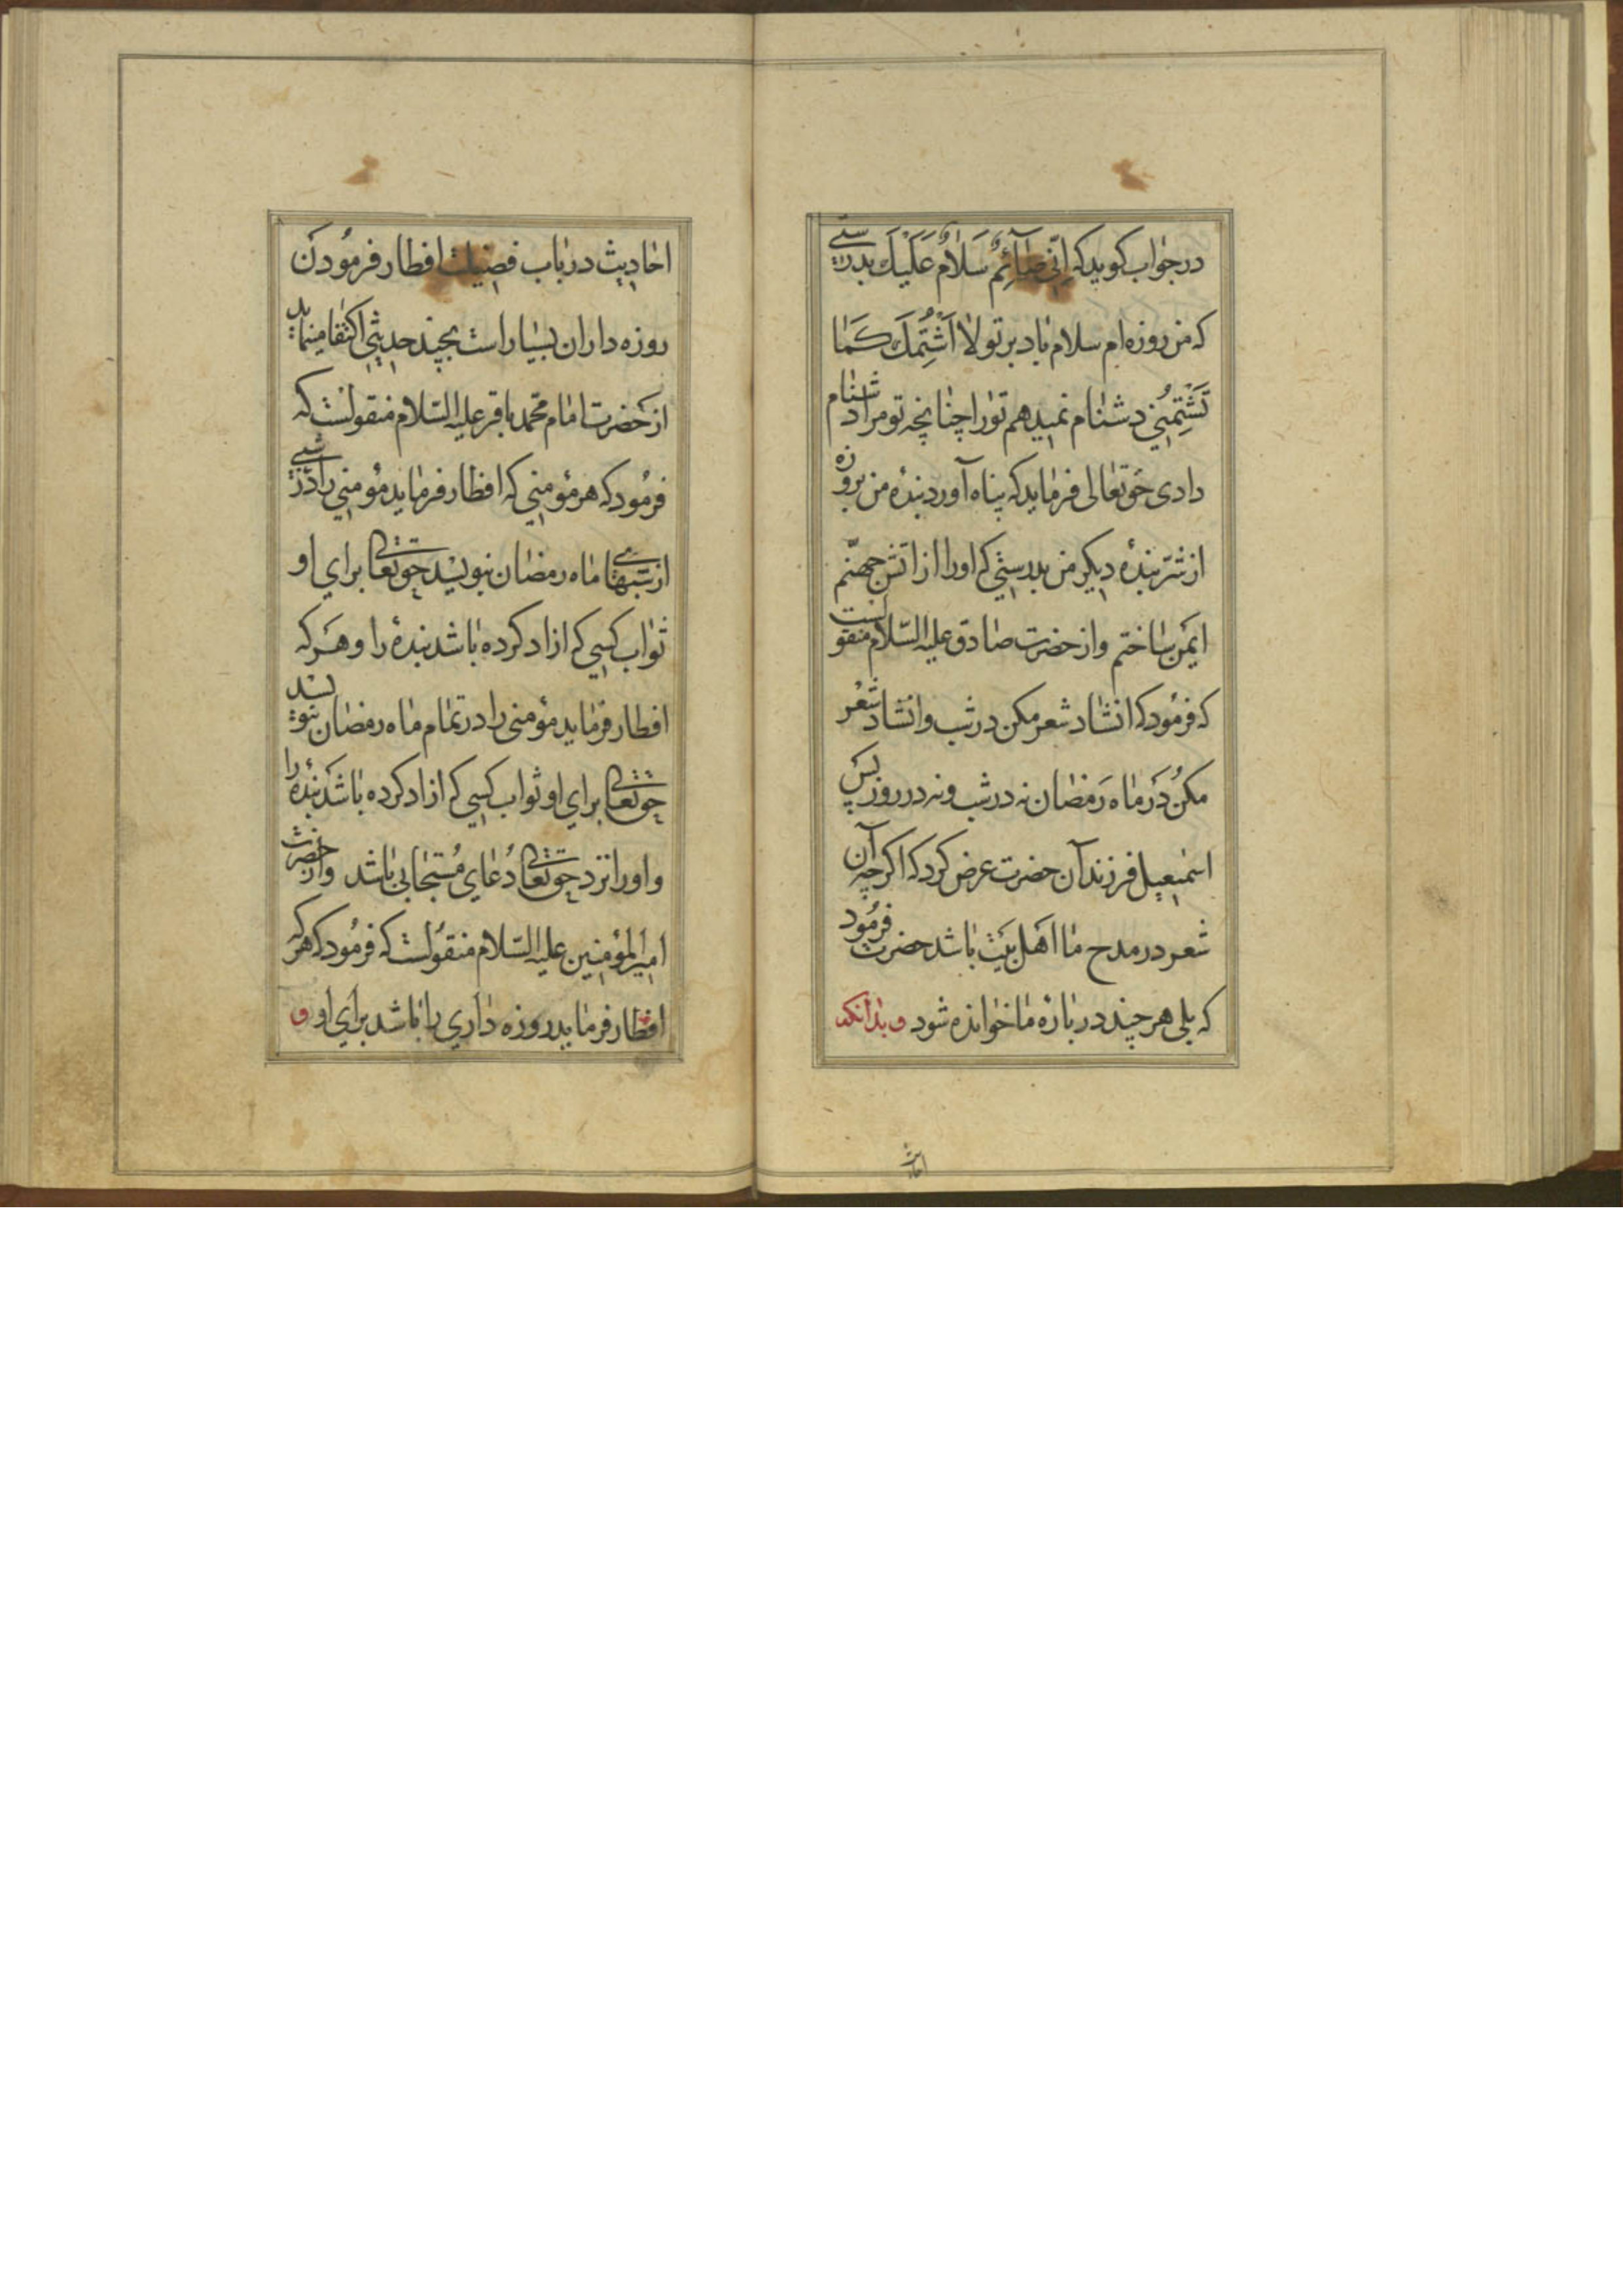 در جواب کوید که اِنّی صٰآئِمٌ سَلٰامٌ عَلَیْكَ بدرستی
که من روزه ام سلام باد بر تو لا اَشْتُمكَ کَمٰا
تَشْتِمُنِی دشنام نمیدهم تو را چنانچه تو مرا دشنام
دادی حقتعالی فرماید که پناه آورد بندهٔ من بروزه
از شرّ بندهٔ دیکر من بدرستی که او را از اتش جهنّم
ایمن ساختم و از حضرت صادق علیه السّلام منقولست
که فرمود که انشاد شعر مکن در شب و انشاد شعر
مکن در ماه رمضان نه در شب و نه در روز پس
اسمٰعیل فرزند آن حضرت عرض کرد که اکر چه آن
شعر در مدح ما اهل بیت باشد حضرت فرمود
که بلی هر چند در بارهٔ ما خوانده شود و بدانکه
احادیث
احادیث در باب فضیلت افطار فرمودن
روزه داران بسیار است بچند حدیثی اکتفا مینماید
از حضرت امام محمّد باقر علیه السّلام منقولست که
فرمود که هر مؤمنی که افطار فرماید مؤمنی را در شبی
از شبهای ماه رمضان بنویسد حقتعالی برای او
ثواب کسی که ازاد کرده باشد بندهٔ را و هر که
افطار فرماید مؤمنی را در تمام ماه رمضان بنویسد
حقتعالی برای او ثواب کسی که ازاد کرده باشد بندهٔ را
و او را نزد حقتعالی دُعای مُستجابی باشد و از حضرت
امیرالمؤمنین علیه السّلام منقولست که فرمود که هر که
افطار فرماید روزه داری را باشد برای او و